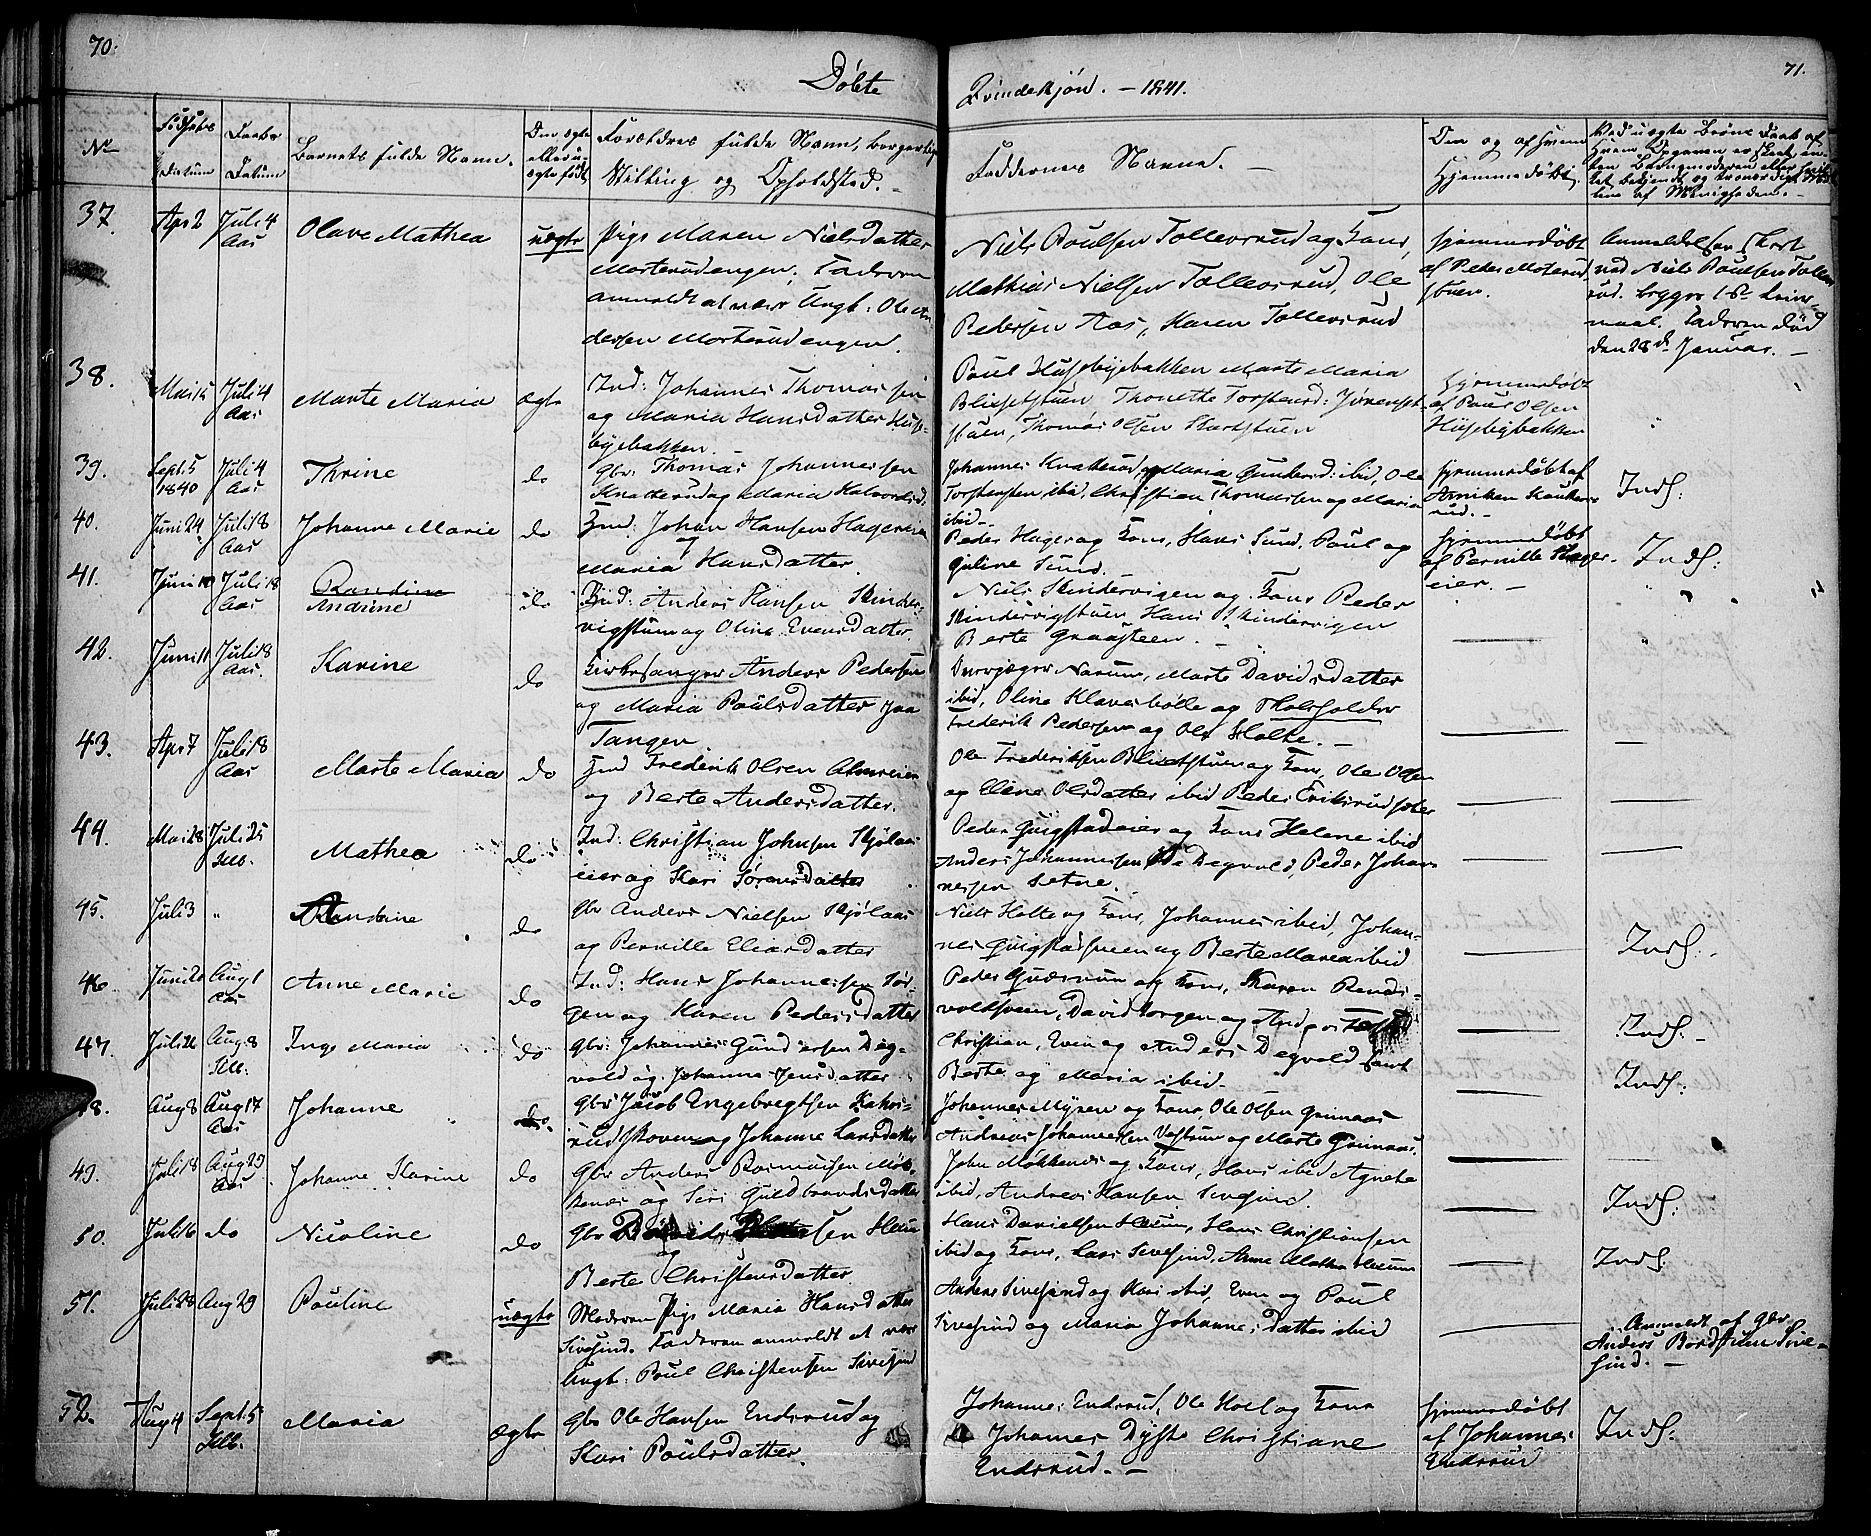 70.
Døbte
Qvindekjøn. – 1841.
71.
No
Fødsels Datum
Daabs Datum
Barnets fulde Navn.
Den ægte eller uægte født
Forældres fulde Navn, borgerlig Stilling og Opholdsted. –
Faddernes Navne. –
Om og af hvem Hjemmedøbt.
37.
Apr 2
Juli 4
Aas
Olave Mathea
uægte
Pige Maren Nielsdatter
Morterudengen; Faderen
anmeldt at være Ungk: Ole An
dersen Morterudengen.
Niels Poulsen Tollevsrud og Kone,
Mathias Nielsen Tollevsrud, Ole
Pedersen Aas, Karen Tollevsrud
hjemmedøbt
af Peder Moterud
stuen.
Anmeldelsen skeet
ved Niels Poulsen Tollev
rud.
Faderen død
den 28de Januar. –
38.
Mai 15
Juli 4
Aas
Marte Maria
ægte
Ind: Johannes Thomassen
og Maria Hansdatter Hus-
byebakken. –
Poul Husebyebakken Marte Maria
Blixetstuen, Thonette Torstensd: Jørenst
stuen, Thomas Olsen Skartstuen
hjemmedøbt
af Poul Olsen
Husebybakken
39.
Sept: 5
1840
Juli 4
Aas
Thrine
do
Gbr: Thomas Johannessen
Knatterud og Maria Halvorsd:
Johannes Knatterud og Maria Gundersd: ibid, Ole
Torstensen ibid, Christian Thomassen og Maria
ibid –
hjemmedøbt af
Anniken Hauke-
rud. –
Inds:
40.
Juni 24
Juli 18
Aas
Johanne Marie
do
Ind: Johan Hansen Hagereie
og
Maria Hansdatter.
Peder Hager og Kone, Hans Sund, Poul og
Guline Sund.
hjemmedøbt
af Pernille Hager
eier. –
Inds:
41.
Juni 10
Juli 18
Aas
Randine
Andrine
do
Ind: Anders Hansen Skinder-
vigstuen og Oline Evensdatter
Niels Skindervigen og Kone Peder
Skindervigstuen, Hans Skindervigen
Berte Graasteen. –
42.
Juni 11
Juli 18
Aas.
Karine
do
Kirkesanger Anders Pedersen
og Maria Poulsdatter paa
Tangen
Narum, Marte Davidsdatter
ibid, Oline Klaversbølle og Skoleholder
Frederik Pedersen og Ole Holte. –
43.
Apr 7
Juli 18
Aas
Marte Maria
do
Ind Frederik Olsen Almseie
og Berte Andersdatter.
Ole Frederiksen Blixetstuen og Kone, Ole Olsen
og Elene Olsdatter ibid Peder Eriksrudseter
44.
Mai 28
Juli 25
Kolb.
Mathea
do
Ind: Christian Johnsen Skjølaas
eier og Kari Sørensdatter
Peder Quigstadeier og Kone Helene ibid
Anders Johannessen Degvold, Peder Johan
nessen Setne.
45.
Juli 3
"
Randine
do
Gbr Anders Nielsen Skjølaas
og Pernille Eliasdatter
Niels Holte og Kone, Johannes ibid, Johan-
nes Quigstadsveen og Berte Maria ibid
Inds:
46.
Juni 20
Aug 1
Aas
Anne Marie
do
Ind: Hans Johannessen Sør-
gen og Karen Pedersdatter
Peder Quærnum og Kone, Karen Rends-
voldsveen, David Sorgen og Anders
Inds: –
47.
Juli 22
Aug: 8
Kolb.
Inge Maria
do
Gbr: Johannes Gundersen Deg-
vold og Johanna Jensdatter
Christian, Even og Anders Degvold samt
Berte og Maria ibid –
Inds:
48.
Aug 8
Aug 17
Aas
Johanne
do.
Gbr Jacob Engebregtsen Kakers-
rudskoven og Johanne Larsdatter
Johannes Myren og Kone, Ole Olsen Grimaas
Andreas Johannessen Vestrum og Marte Grimaas.
49.
Juli 18
Aug 29
Aas
Johanne Karine
do
Gbr Anders Rasmussen Møk-
kenes og Siri Guldbrandsdatter
John Møkkenes og Kone, Hans ibid Agnethe
ibid, Andreas Hansen Sivesind.
Inds:
50.
Juli 6
do
Nicoline
do
Gbr David sen Heum
og
Berte Christensdatter.
Hans Danielsen Heum, Hans Christiansen
ibid og Kone, Lars Sivesind, Anne Mathea Heum
Inds:
51.
Juli 28
Aug 29
Pauline
uægte
Moderen Pige Maria Hansdatter
Sivesind. Faderen anmeldt at være
Ungk: Poul Christensen Sivesind
Anders Sivesind og Kari ibid, Even og Poul
Sivesind og Maria Johannesdatter ibid
Anmeldt af Gbr
Anders Bordstuen Sive-
sind. –
52.
Aug 4
Sept: 5
Kolb.
Maria
ægte
Gbr Ole Hansen Endrerud og
Kari Poulsdatter.
Johannes Endrerud, Ole Hoel og Kone
Johannes Dyste Christiane
Endrerud. –
hjemmedøbt
af Johannes
Endrerud
Inds: